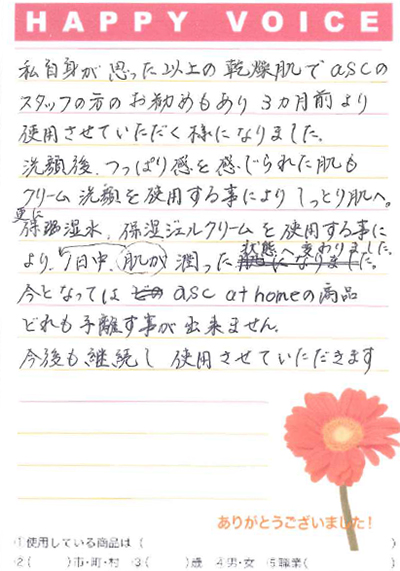 HAPPY VOICE
私自身が思った以上の乾燥肌でascの
スタッフの方のお勧めもあり3カ月前より
使用させていただく様になりました。
洗顔後、つっぱり感を感じられた肌も
クリーム洗顔を使用する事によりしっとり肌へ。
更に
保湿水、保湿ジェルクリームを使用する事に
状態へ変わりました。
より、1日中、肌が潤った
今となっては asc at homeの商品
どれも手離す事が出来ません。
今後も継続し使用させていただきます
ありがとうございました!
①使用している商品は( )
②( )市・町・村 ③( )歳 ④男・女 ⑤職業( )